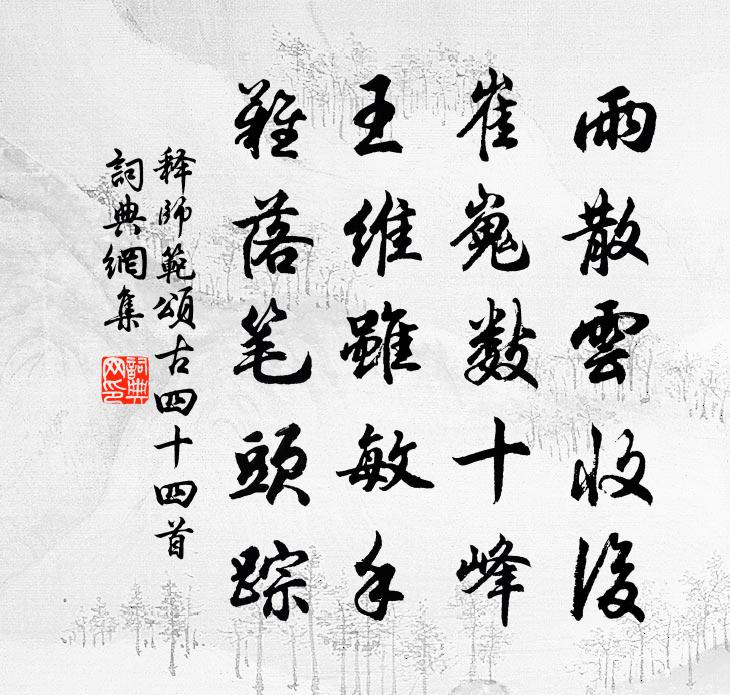 雨散雲收後
崔嵬數十峰
王維雖敏手
難落笔頭踪
释師範頌古四十四首
詞典網集
詞典网印